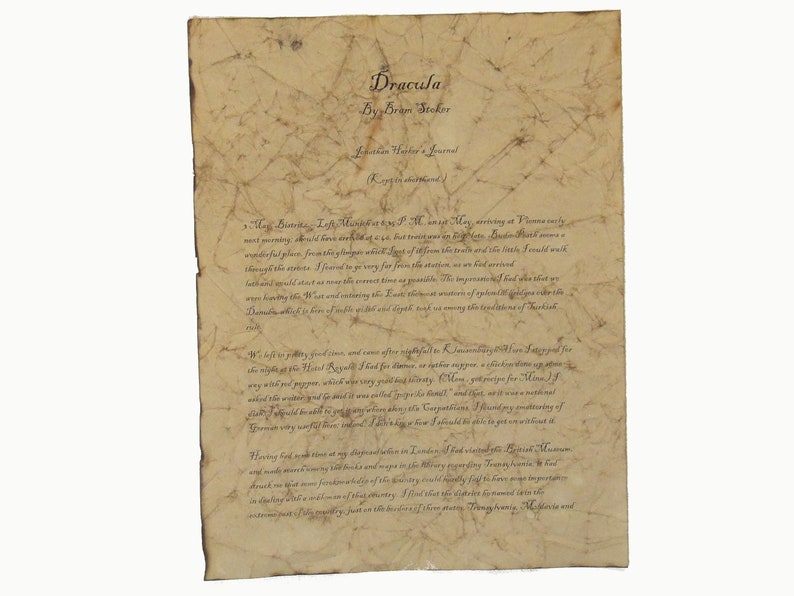 Dracula
By Bram Stoker
Jonathan Harker's Journal
(Kept in shorthand.)
3 May. Bistritz.- Left Munich at 8:35 P. M. on 1st May, arriving at Vienna early
next morning; should have arrived at 6:46, but train was an hour late. Buda-Pesth seems a
wonderful place, from the glimpse which I got of it from the train and the little I could walk
through the streets. I feared to go very far from the station, as we had arrived
late and would start as near the correct time as possible. The impression I had was that we
were leaving the West and entering the East; the most western of splendid bridges over the
Danube, which is here of noble width and depth, took us among the traditions of Turkish
rule.
We left in pretty good time, and came after nightfall to Klausenburgh. Here I stopped for
the night at the Hotel Royale. I had for dinner, or rather supper, a chicken done up some
way with red pepper, which was very good but thirsty. (Mem., get recipe for Mina.) I
asked the waiter, and he said it was called "paprika hendl," and that, as it was a national
dish, I should be able to get it anywhere along the Carpathians. I found my smattering of
German very useful here; indeed, I don't know how I should be able to get on without it.
Having had some time at my disposal when in London, I had visited the British Museum,
and made search among the books and maps in the library regarding Transylvania; it had
struck me that some foreknowledge of the country could hardly fail to have some importance
in dealing with a nobleman of that country. I find that the district he named is in the
extreme east of the country, just on the borders of three states, Transylvania, Moldavia and